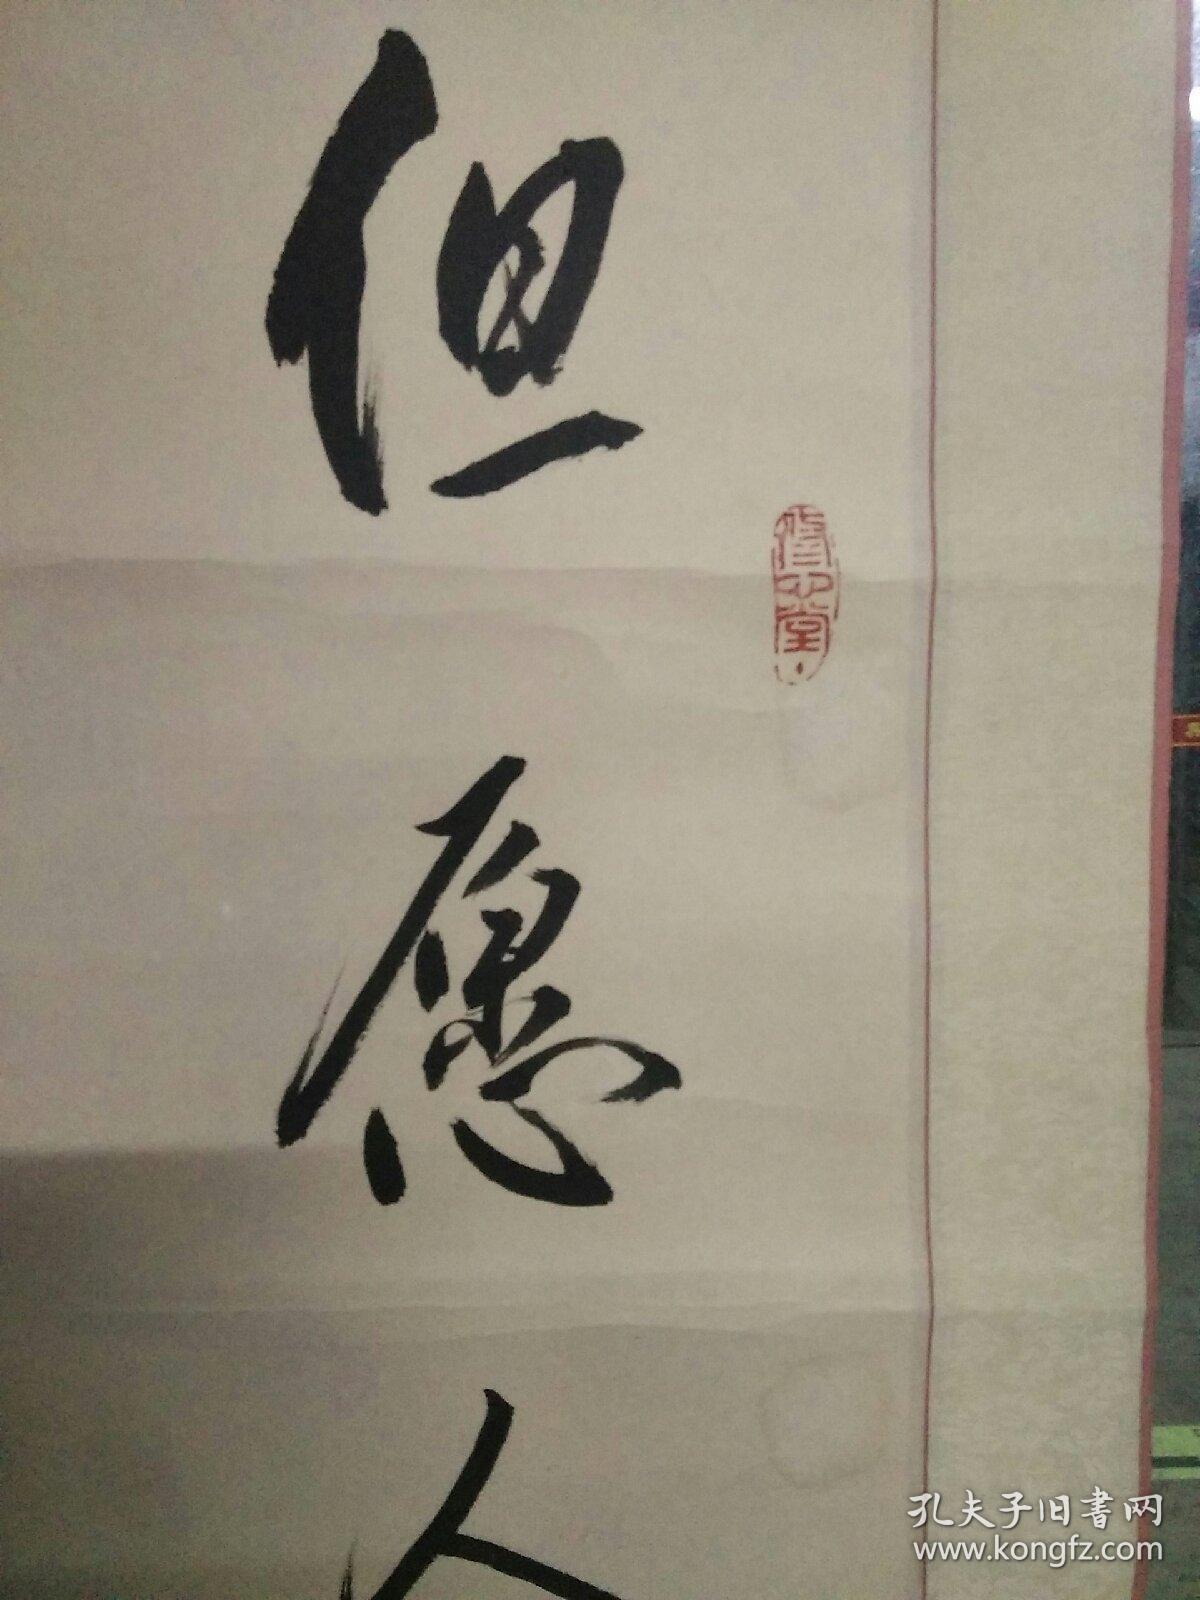 但愿人
修心堂
孔夫子旧書网
www.kongfz.com